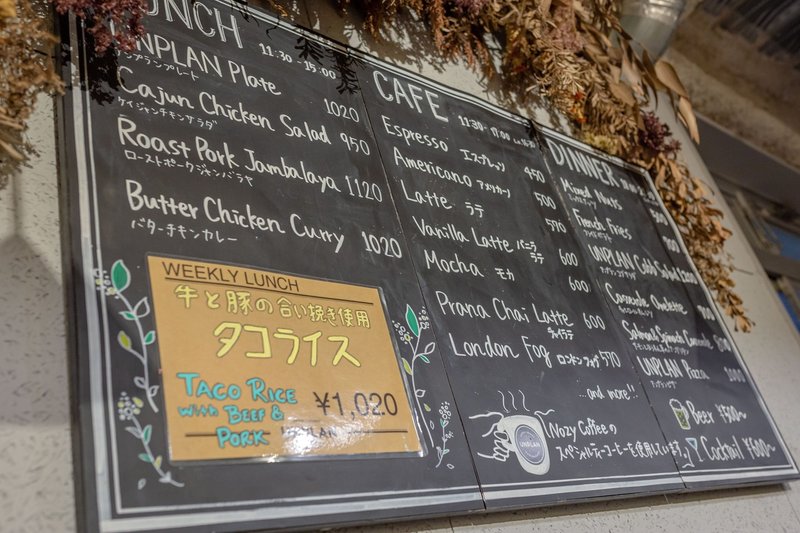 LUNCH 11:30-15:00
UNPLAN Plate 1020
アンプランプレート
Cajun Chicken Salad 950
ケイジャンチキンサラダ
Roast Pork Jambalaya 1120
ローストポークジャンバラヤ
Butter Chicken Curry 1020
バターチキンカレー
WEEKLY LUNCH
牛と豚の合い挽き使用
タコライス
TACO RICE
with BEEF &
PORK
¥1,020
CAFE 11:30-17:00
Espresso エスプレッソ 450
Americano アメリカーノ 500
Latte ラテ 570
Vanilla Latte バニラ ラテ 600
Mocha モカ 600
Prana Chai Latte チャイラテ 600
London Fog ロンドンフォグ 570
and more!!
UNPLAN
Nozy Coffeeの
スペシャルティーコーヒーを使用しています
DINNER
Mixed Nuts 500
French Fries
UNPLAN Cobb Salad 1200
Omelette
Spinach
UNPLAN Pizza
Beer ¥500~
Cocktail ¥600~